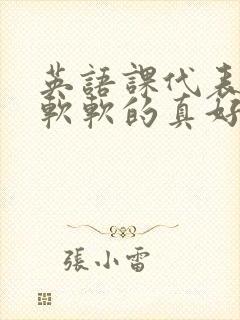 英語課代表
軟軟的真好
張小雷